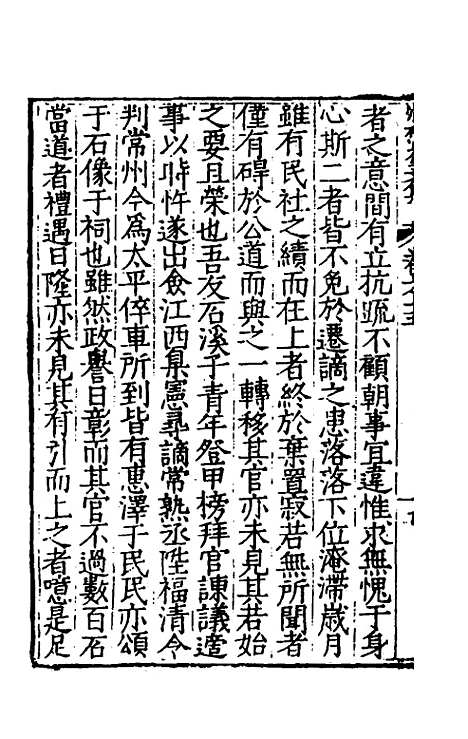 者之意間有立抗疏不顧朝事宜違惟求無愧于身
心斯二者皆不免於遷謫之患落落下位淹滯歲月
雖有民社之績而在上者終於棄置寂若無所聞者
僅有碍於公道而與之一轉移其官亦未見其若始
之要且榮也吾友石溪子青年登甲榜拜官諫議適
事以時忤遂出僉江西臬憲尋謫常熟丞陞福清令
判常州今爲太平倅車所到皆有惠澤于民民亦頌
于石像于祠也雖然政譽日彰而其官不過數百石
當道者禮遇日隆亦未見其有引而上之者噫是足